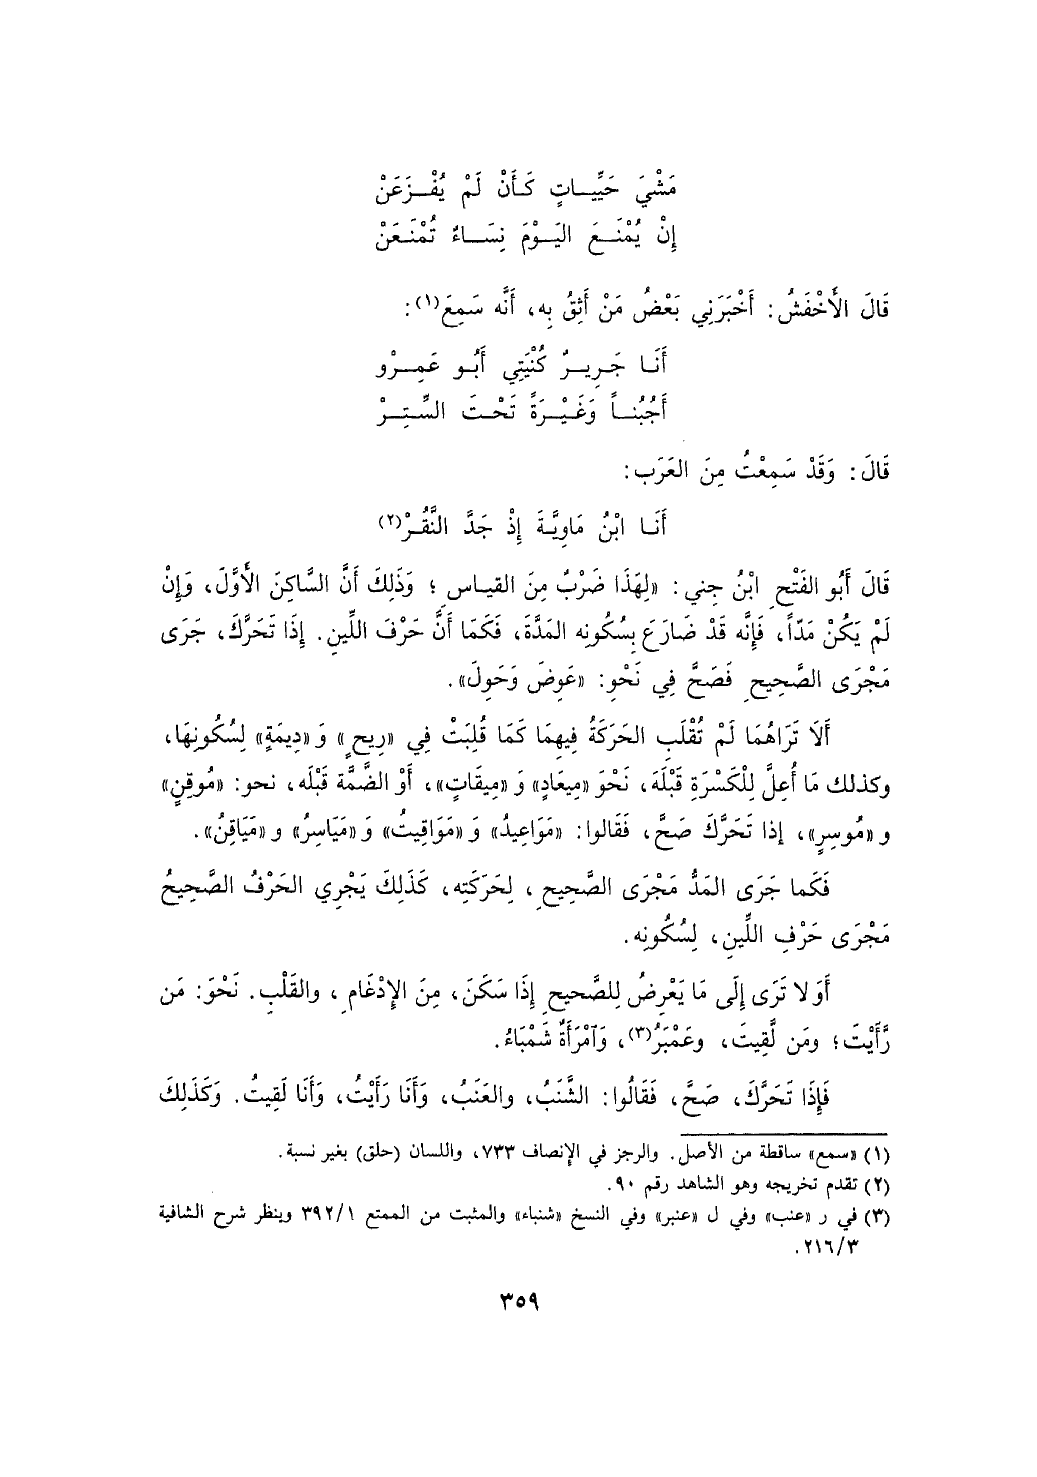 مَشْيَ حَيِّـاتٍ كَـأَنْ لَمْ يُفْـزَعَنْ
إِنْ يُمْنَـعَ اليَـوْمَ نِسَـاءٌ تُمْنَـعَنْ
قَالَ الأَخْفَشُ: أَخْبَرَنِي بَعْضُ مَنْ أَثِقُ بِه، أَنَّه سَمِعَ(١):
أَنَـا جَـرِيـرٌ كُنْيَتِي أَبُـو عَمِـرْو
أَجُبُنـاً وَغَيْـرَةً تَحْـتَ السِّـتِـرْ
قَالَ: وَقَدْ سَمِعْتُ مِنَ العَرَب:
أَنَـا ابْنُ مَاوِيَّـةَ إِذْ جَدَّ النَّقُـرْ(٢)
قَالَ أَبُو الفَتْحِ ابْنُ جِني: «لِهَذَا ضَرْبٌ مِنَ القياسِ؛ وَذَلِكَ أَنَّ السَّاكِنَ الأَوَّلَ، وَإِنْ
لَمْ يَكُنْ مَدّاً، فَإِنَّه قَدْ ضَارَعَ بِسُكُونِه المَدَّةَ، فَكَمَا أَنَّ حَرْفَ اللِّينِ. إِذَا تَحَرَّكَ، جَرَى
مَجْرَى الصَّحِيحِ فَصَحَّ فِي نَحْوِ: «عَوِضَ وَحَولَ».
أَلاَ تَرَاهُمَا لَمْ تُقْلَبِ الحَرَكَةُ فِيهِمَا كَمَا قُلِبَتْ فِي «رِيحٍ» وَ«دِيمَةٍ» لِسُكُونِهَا،
وكذلك مَا أُعِلَّ لِلْكَسْرَةِ قَبْلَهَ، نَحْوَ «مِيعَادٍ» وَ «مِيقَاتٍ»، أَوْ الضَّمَّة قَبْلَه، نحو: «مُوقِنٍ»
و «مُوسِرٍ»، إذا تَحَرَّكَ صَحَّ، فَقَالوا: «مَوَاعِيدُ» وَ «مَوَاقِيتُ» وَ «مَيَاسِرُ» و «مَيَاقِنُ».
فَكَما جَرَى المَدُّ مَجْرَى الصَّحِيحِ، لِحَرَكَتِه، كَذَلِكَ يَجْرِي الحَرْفُ الصَّحِيحُ
مَجْرَى حَرْفِ اللِّينِ، لِسُكُونِه.
أَوَ لا تَرَى إِلَى مَا يَعْرِضُ لِلصَّحيحِ إِذَا سَكَنَ، مِنَ الإِدْغَامِ، والقَلْبِ. نَحْوَ: مَن
رَّأَيْتَ؛ ومَن لَّقِيتَ، وعَمْبَرُ(٣)، وَٱمْرَأَةٌ شَمْبَاءُ.
فَإِذَا تَحَرَّكَ، صَحَّ، فَقَالُوا: الشَّنَبُ، والعَنَبُ، وَأَنَا رَأَيْتُ، وَأَنَا لَقِيتُ. وَكَذَلِكَ
(١) «سمع» ساقطة من الأصل. والرجز في الإنصاف ٧٣٣، واللسان (حلق) بغير نسبة.
(٢) تقدم تخريجه وهو الشاهد رقم ٩٠.
(٣) في ر «عنب» وفي ل «عنبر» وفي النسخ «شنباء» والمثبت من الممتع ٣٩٢/١ وينظر شرح الشافية
٢١٦/٣.
٣٥٩